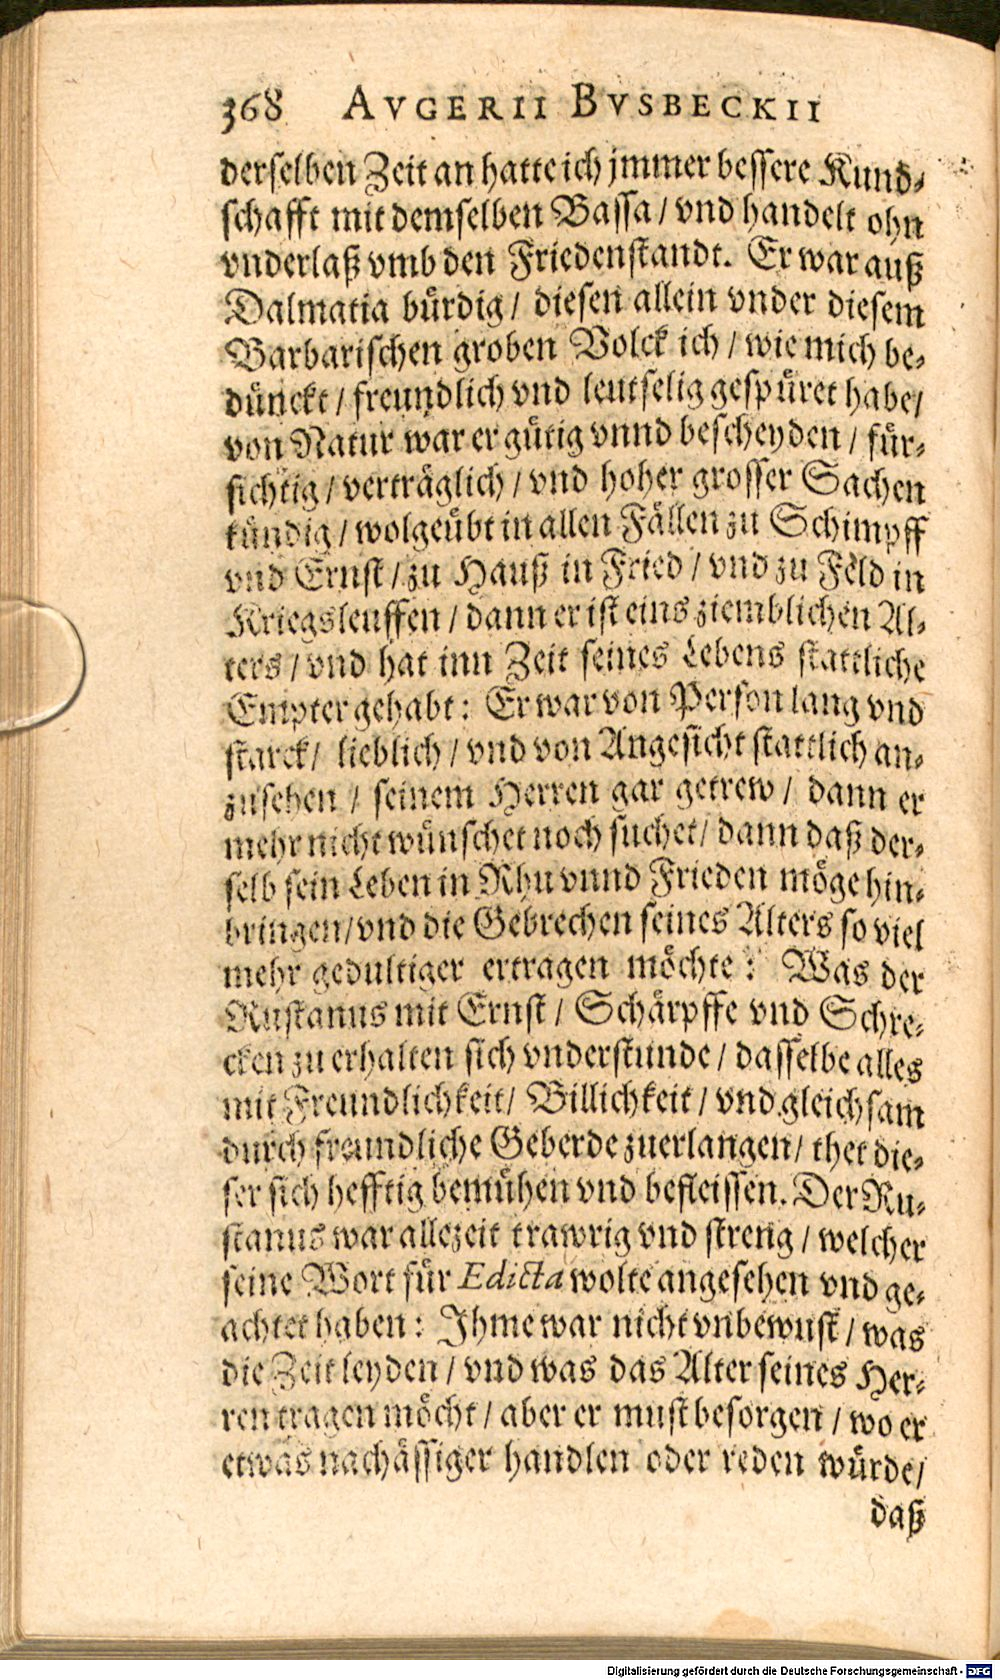 368 AVGERII BVSBECKII
derselben Zeit an hatte ich jmmer bessere Kund-
schafft mit demselben Bassa / vnd handelt ohn
vnderlaß vmb den Friedenstandt. Er war auß
Dalmatia bürdig / diesen allein vnder diesem
Barbarischen groben Volck ich / wie mich be-
dünckt / freundlich vnd leutselig gespüret habe /
von Natur war er gütig vnnd bescheyden / für-
sichtig / verträglich / vnd hoher grosser Sachen
kündig / wolgeübt in allen Fällen zu Schimpff
vnd Ernst / zu Hauß in Fried / vnd zu Feld in
Kriegsleuffen / dann er ist eins ziemblichen Al-
ters / vnd hat inn Zeit seines Lebens stattliche
Empter gehabt: Er war von Person lang vnd
starck / lieblich / vnd von Angesicht stattlich an-
zusehen / seinem Herren gar getrew / dann er
mehr nicht wünschet noch suchet / dann daß der-
selb sein Leben in Rhu vnnd Frieden möge hin-
bringen / vnd die Gebrechen seines Alters so viel
mehr gedultiger ertragen möchte: Was der
Rustanus mit Ernst / Schärpffe vnd Schre-
cken zu erhalten sich vnderstunde / dasselbe alles
mit Freundlichkeit / Billichkeit / vnd gleichsam
durch freundliche Geberde zuerlangen / thet die-
ser sich hefftig bemühen vnd befleissen. Der Ru-
stanus war allezeit trawrig vnd streng / welcher
seine Wort für Edicta wolte angesehen vnd ge-
achtet haben: Ihme war nicht vnbewust / was
die Zeit leyden / vnd was das Alter seines Her-
ren tragen möcht / aber er must besorgen / wo er
etwas nachässiger handlen oder reden würde /
daß
Digitalisierung gefördert durch die Deutsche Forschungsgemeinschaft - DFG